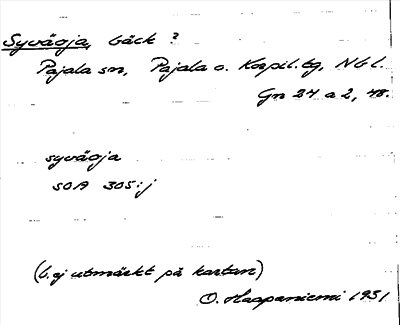 Syväoja, bäck ?
Pajala sn, Pajala o. Korpil. tg, Nbl.
Gn 24 a 2, 48.
syväoja
SOA 305:j
(b. ej utmärkt på kartan)
O. Haapaniemi 1931